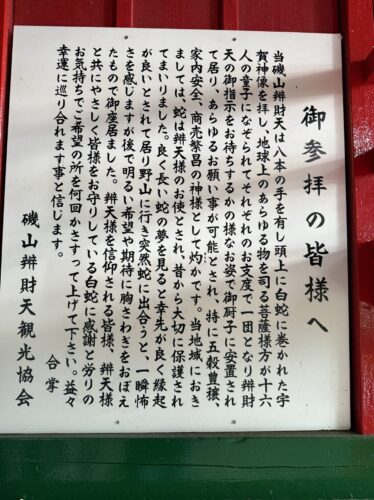 御参拝の皆様へ
当磯山辨財天は八本の手を有し頭上に白蛇に巻かれた宇
賀神像を拝し、地球上のあらゆる物を司る菩薩様方が十六
人の童子になぞられてそれぞれのお支度で一団となり辨財
天の御指示をお待ちするかの様なお姿で御厨子に安置され
て居り、あらゆるお願い事が可能とされ、特に五穀豊穣、
家内安全、商売繁昌の神様として灼かです。当地域におき
ましては、蛇は辨天様のお使とされ、昔から大切に保護され
てまいりました。良く長い蛇の夢を見ると幸先が良く縁起
が良いとされて居り野山に行き突然蛇に出合うと、一瞬怖
さを感じますが後で明るい希望や期待に胸さわぎをおぼえ
たもので御座居ました。辨天様を信仰される皆様、辨天様
と共にやさしく皆様をお守りしている白蛇に感謝と労りの
お気持ちでご希望の所を何回かさすって上げて下さい。益々
幸運に巡り合れます事と信じます。
合掌
磯山辨財天観光協会